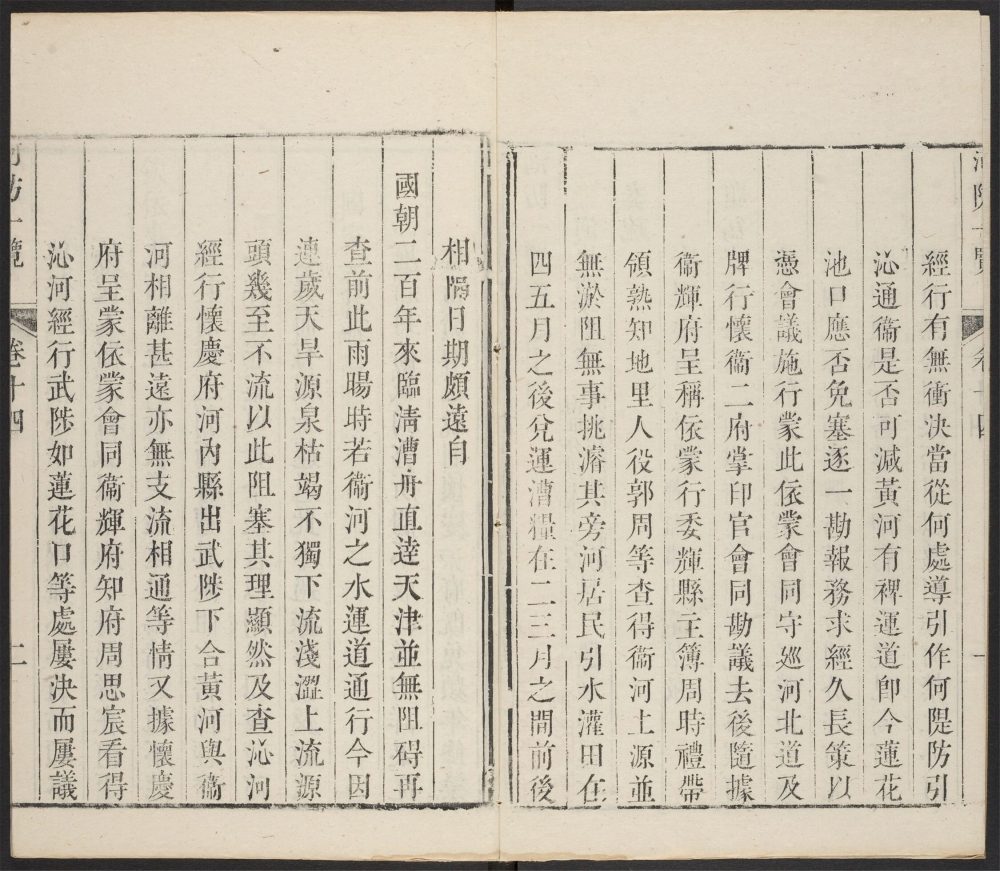 河防一覽
卷
四
一
經行有無衝決當從何處導引作何隄防引
沁通衞是否可減黃河有裨運道卽今蓮花
池口應否免塞逐一勘報務求經久長策以
憑會議施行蒙此依蒙會同守巡河北道及
牌行懷衞二府掌印官會同勘議去後隨據
衞輝府呈稱依蒙行委輝縣主簿周時禮帶
領熟知地里人役郭周等查得衞河上源並
無淤阻無事挑濬其旁河居民引水灌田在
四五月之後兌運漕糧在二三月之間前後
相隔日期頗遠自
國朝二百年來臨淸漕舟直達天津並無阻碍再
查前此雨暘時若衞河之水運道通行今因
連歲天旱源泉枯竭不獨下流淺澀上流源
頭幾至不流以此阻塞其理顯然及查沁河
經行懷慶府河內縣出武陟下合黃河與衞
河相離甚遠亦無支流相通等情又據懷慶
府呈蒙依蒙會同衞輝府知府周思宸看得
沁河經行武陟如蓮花口等處屢決而屢議
河防一覽
卷十四
二